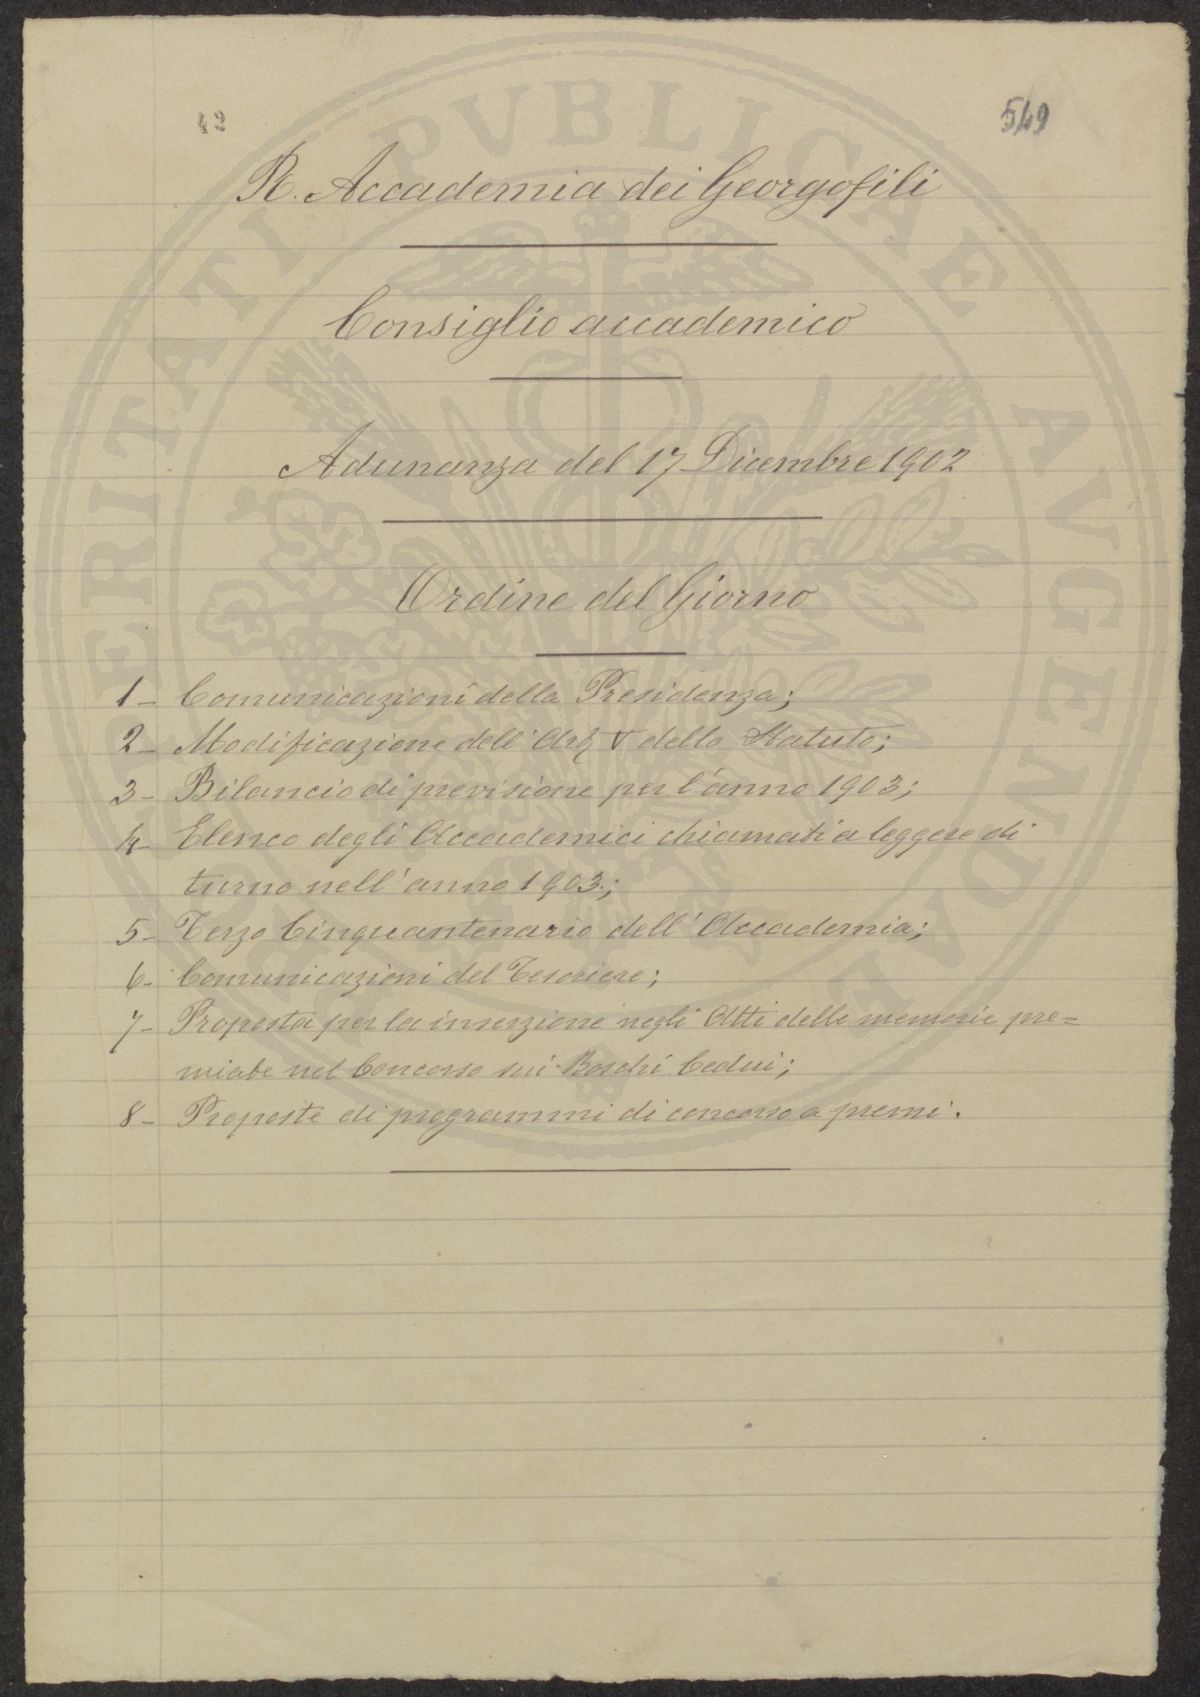 42
549
R. Accademia dei Georgofili
Consiglio accademico
Adunanza del 17 Dicembre 1902
Ordine del Giorno
1 - Comunicazioni della Presidenza;
2 - Modificazione dell'Art. V dello Statuto;
3 - Bilancio di previsione per l'anno 1903;
4 - Elenco degli Accademici chiamati a leggere di
turno nell'anno 1903.;
5 - Terzo Cinquantenario dell'Accademia;
6 - Comunicazioni del Tesoriere;
7 - Proposta per la inserzione negli Atti delle memorie pre=
miate nel Concorso sui Boschi Cedui;
8 - Proposte di programmi di concorso a premi.
PROSPERITATI PVBLICAE AVGENDAE